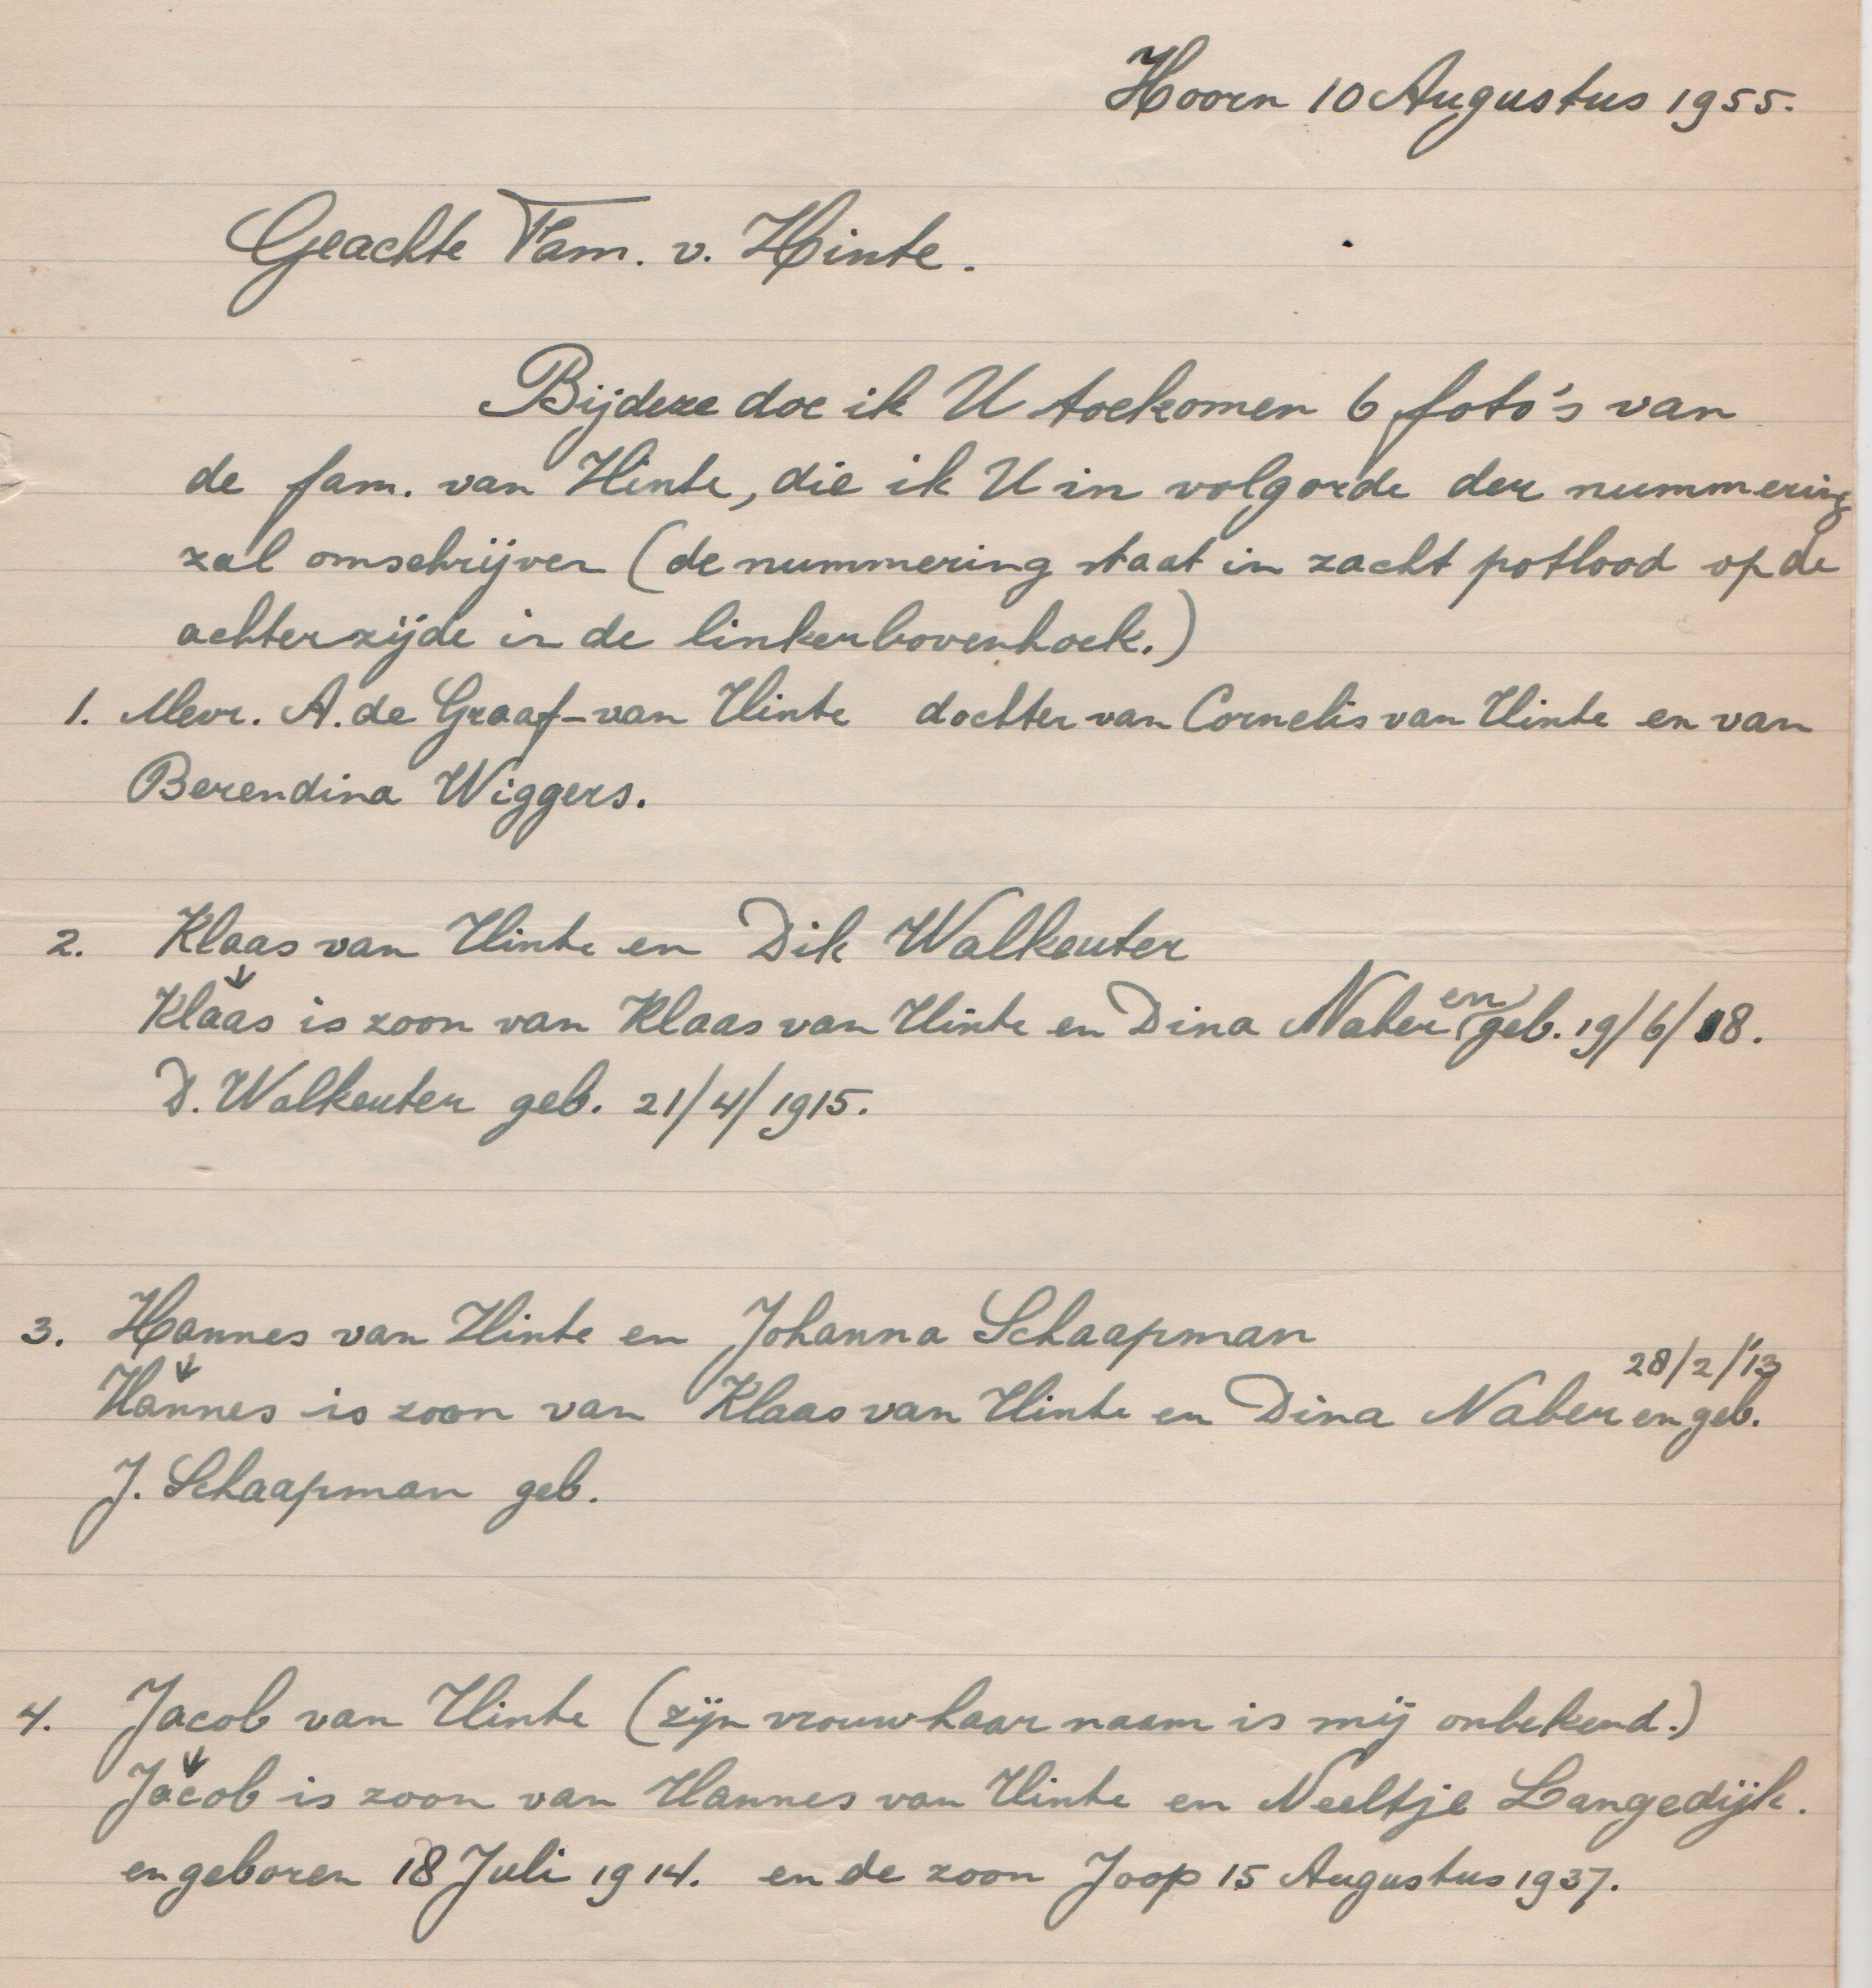 Hoorn 10 Augustus 1955.
Geachte Fam. v. Hinte.
Bijdeze doe ik U toekomen 6 foto's van
de fam. van Hinte, die ik U in volgorde der nummering
zal omschrijven (de nummering staat in zacht potlood op de
achterzijde in de linkerbovenhoek.)
1. Mevr. A. de Graaf-van Hinte dochter van Cornelis van Hinte en van
Berendina Wiggers.
2. Klaas van Hinte en Dik Walkeuter
Klaas is zoon van Klaas van Hinte en Dina Naber en geb. 19/6/18.
D. Walkeuter geb. 21/4/1915.
3. Hannes van Hinte en Johanna Schaapman
28/2/'13
Hannes is zoon van Klaas van Hinte en Dina Naber en geb.
J. Schaapman geb.
4. Jacob van Hinte (zijn vrouw haar naam is mij onbekend.)
Jacob is zoon van Hannes van Hinte en Neeltje Langedijk.
en geboren 18 Juli 1914. en de zoon Joop 15 Augustus 1937.